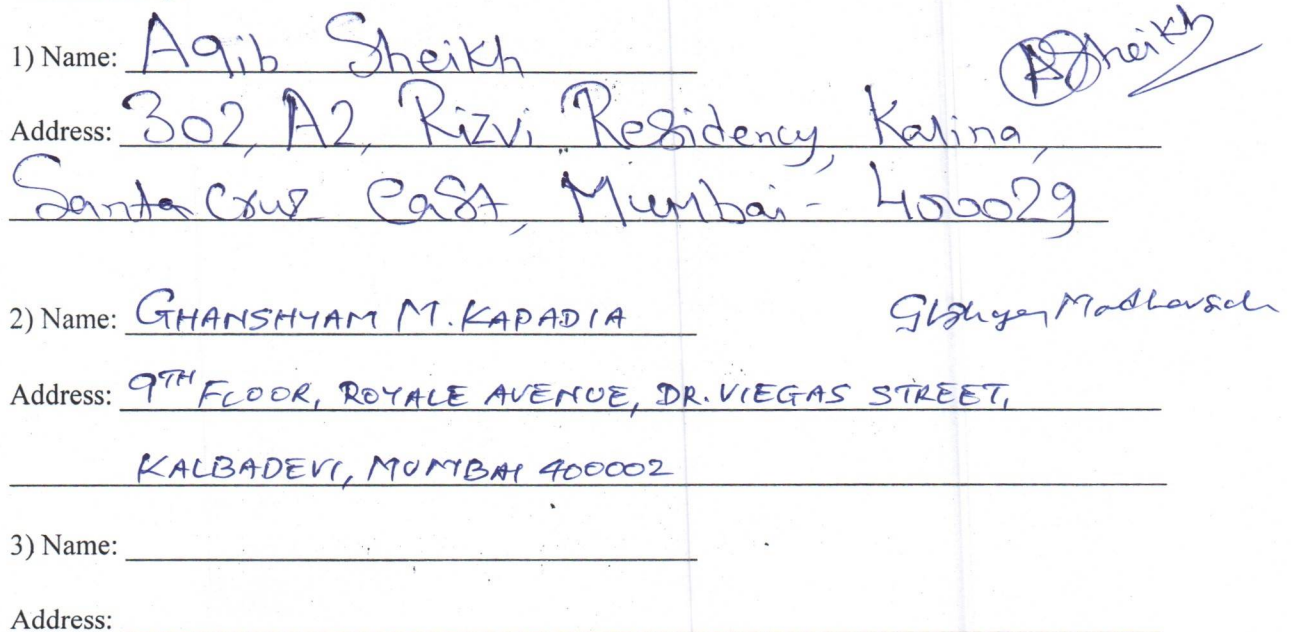 1) Name: Aqib Sheikh
ASheikh
Address: 302, A2, Rizvi Residency, Kalina,
Santa Cruz east, Mumbai - 400029
2) Name: GHANSHYAM M. KAPADIA
Address: 9TH FLOOR, ROYALE AVENUE, DR. VIEGAS STREET,
KALBADEVI, MUMBAI 400002
3) Name:
Address: